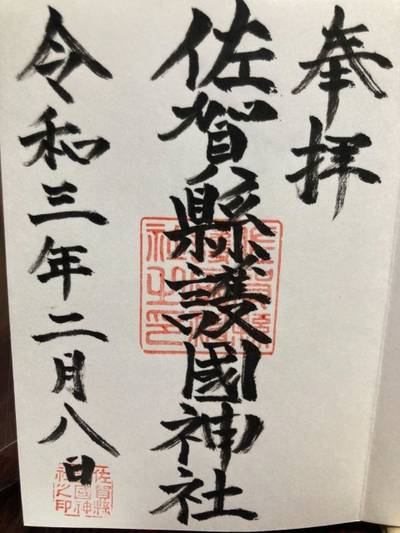 奉拝
佐賀縣護國神社
令和三年二月八日
佐賀縣
護國神
社之印